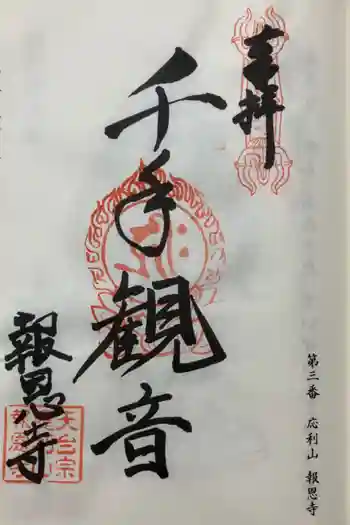 奉拝
第三番 応利山 報恩寺
千手観音
報恩寺
天台宗